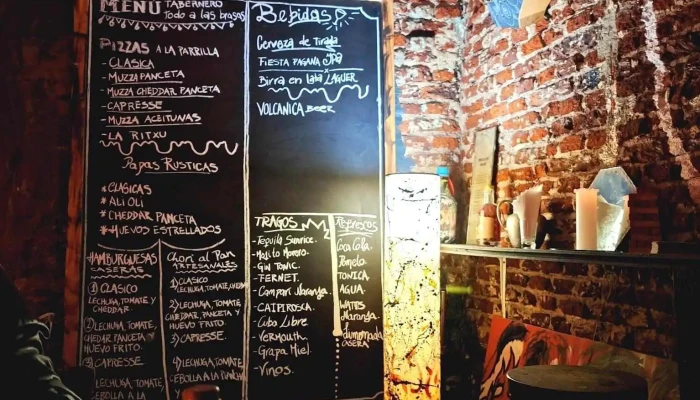 MENÚ TABERNERO
Todo a las brasas
PIZZAS A LA PARRILLA
- CLASICA
- MUZZA PANCETA
- MUZZA CHEDDAR PANCETA
- CAPRESSE
- MUZZA ACEITUNAS
- LA RITXU
PAPAS RUSTICAS
* CLASICAS
* ALI OLI
* CHEDDAR PANCETA
* HUEVOS ESTRELLADOS
HAMBURGUESAS
CASERAS
1) CLASICO
LECHUGA, TOMATE Y
CHEDDAR.
2) LECHUGA, TOMATE,
CHEDDAR PANCETA Y
HUEVO FRITO.
3) CAPRESSE
LECHUGA, TOMATE
Chori al Pan
ARTESANALES
1) CLASICO
LECHUGA, TOMATE, CHEDDAR
2) LECHUGA, TOMATE
CHEDDAR, PANCETA Y
HUEVO FRITO.
3) CAPRESSE.
4) LECHUGA, TOMATE
CEBOLLA A LA PLANCHA
Bebidas
Cerveza de Tirada
FIESTA PAGANA IPA
Birra en lata LAGUER
VOLCANICA BEER
TRAGOS
- Tequila Sunrice.
- Mojito Morero.
- GIN TONIC.
- FERNET.
- Campari Naranja.
- CAIPIROSCA.
- Cuba Libre
- VERMOUTH.
- Grapa Miel.
- Vinos.
Refrescos
Coca Cola.
Pomelo.
TONICA.
AGUA.
WATTS
Naranja.
Limonada
CASERA